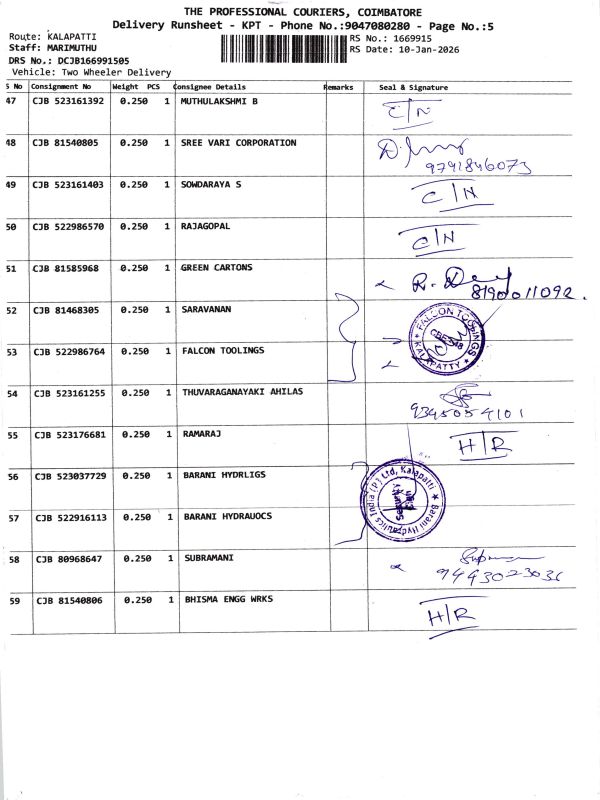 THE PROFESSIONAL COURIERS, COIMBATORE
Delivery Runsheet - KPT - Phone No.:9047080280 - Page No.:5
Route: KALAPATTI
RS No.: 1669915
Staff: MARIMUTHU
RS Date: 10-Jan-2026
DRS No.: DCJB166991505
Vehicle: Two Wheeler Delivery
S No Consignment No Weight PCS Consignee Details Remarks Seal & Signature
47 CJB 523161392 0.250 1 MUTHULAKSHMI B C/N
48 CJB 81540805 0.250 1 SREE VARI CORPORATION
9791846073
49 CJB 523161403 0.250 1 SOWDARAYA S C/N
50 CJB 522986570 0.250 1 RAJAGOPAL C/N
51 CJB 81585968 0.250 1 GREEN CARTONS
8190011092.
52 CJB 81468305 0.250 1 SARAVANAN
FALCON TOOLINGS
KALAPATTY
53 CJB 522986764 0.250 1 FALCON TOOLINGS
54 CJB 523161255 0.250 1 THUVARAGANAYAKI AHILAS
9345054101
55 CJB 523176681 0.250 1 RAMARAJ H/R
56 CJB 523037729 0.250 1 BARANI HYDRLIGS
Barani Hydraulics India (P) Ltd, Kalapatti
57 CJB 522916113 0.250 1 BARANI HYDRAUOCS
58 CJB 80968647 0.250 1 SUBRAMANI
9443023036
59 CJB 81540806 0.250 1 BHISMA ENGG WRKS H/R